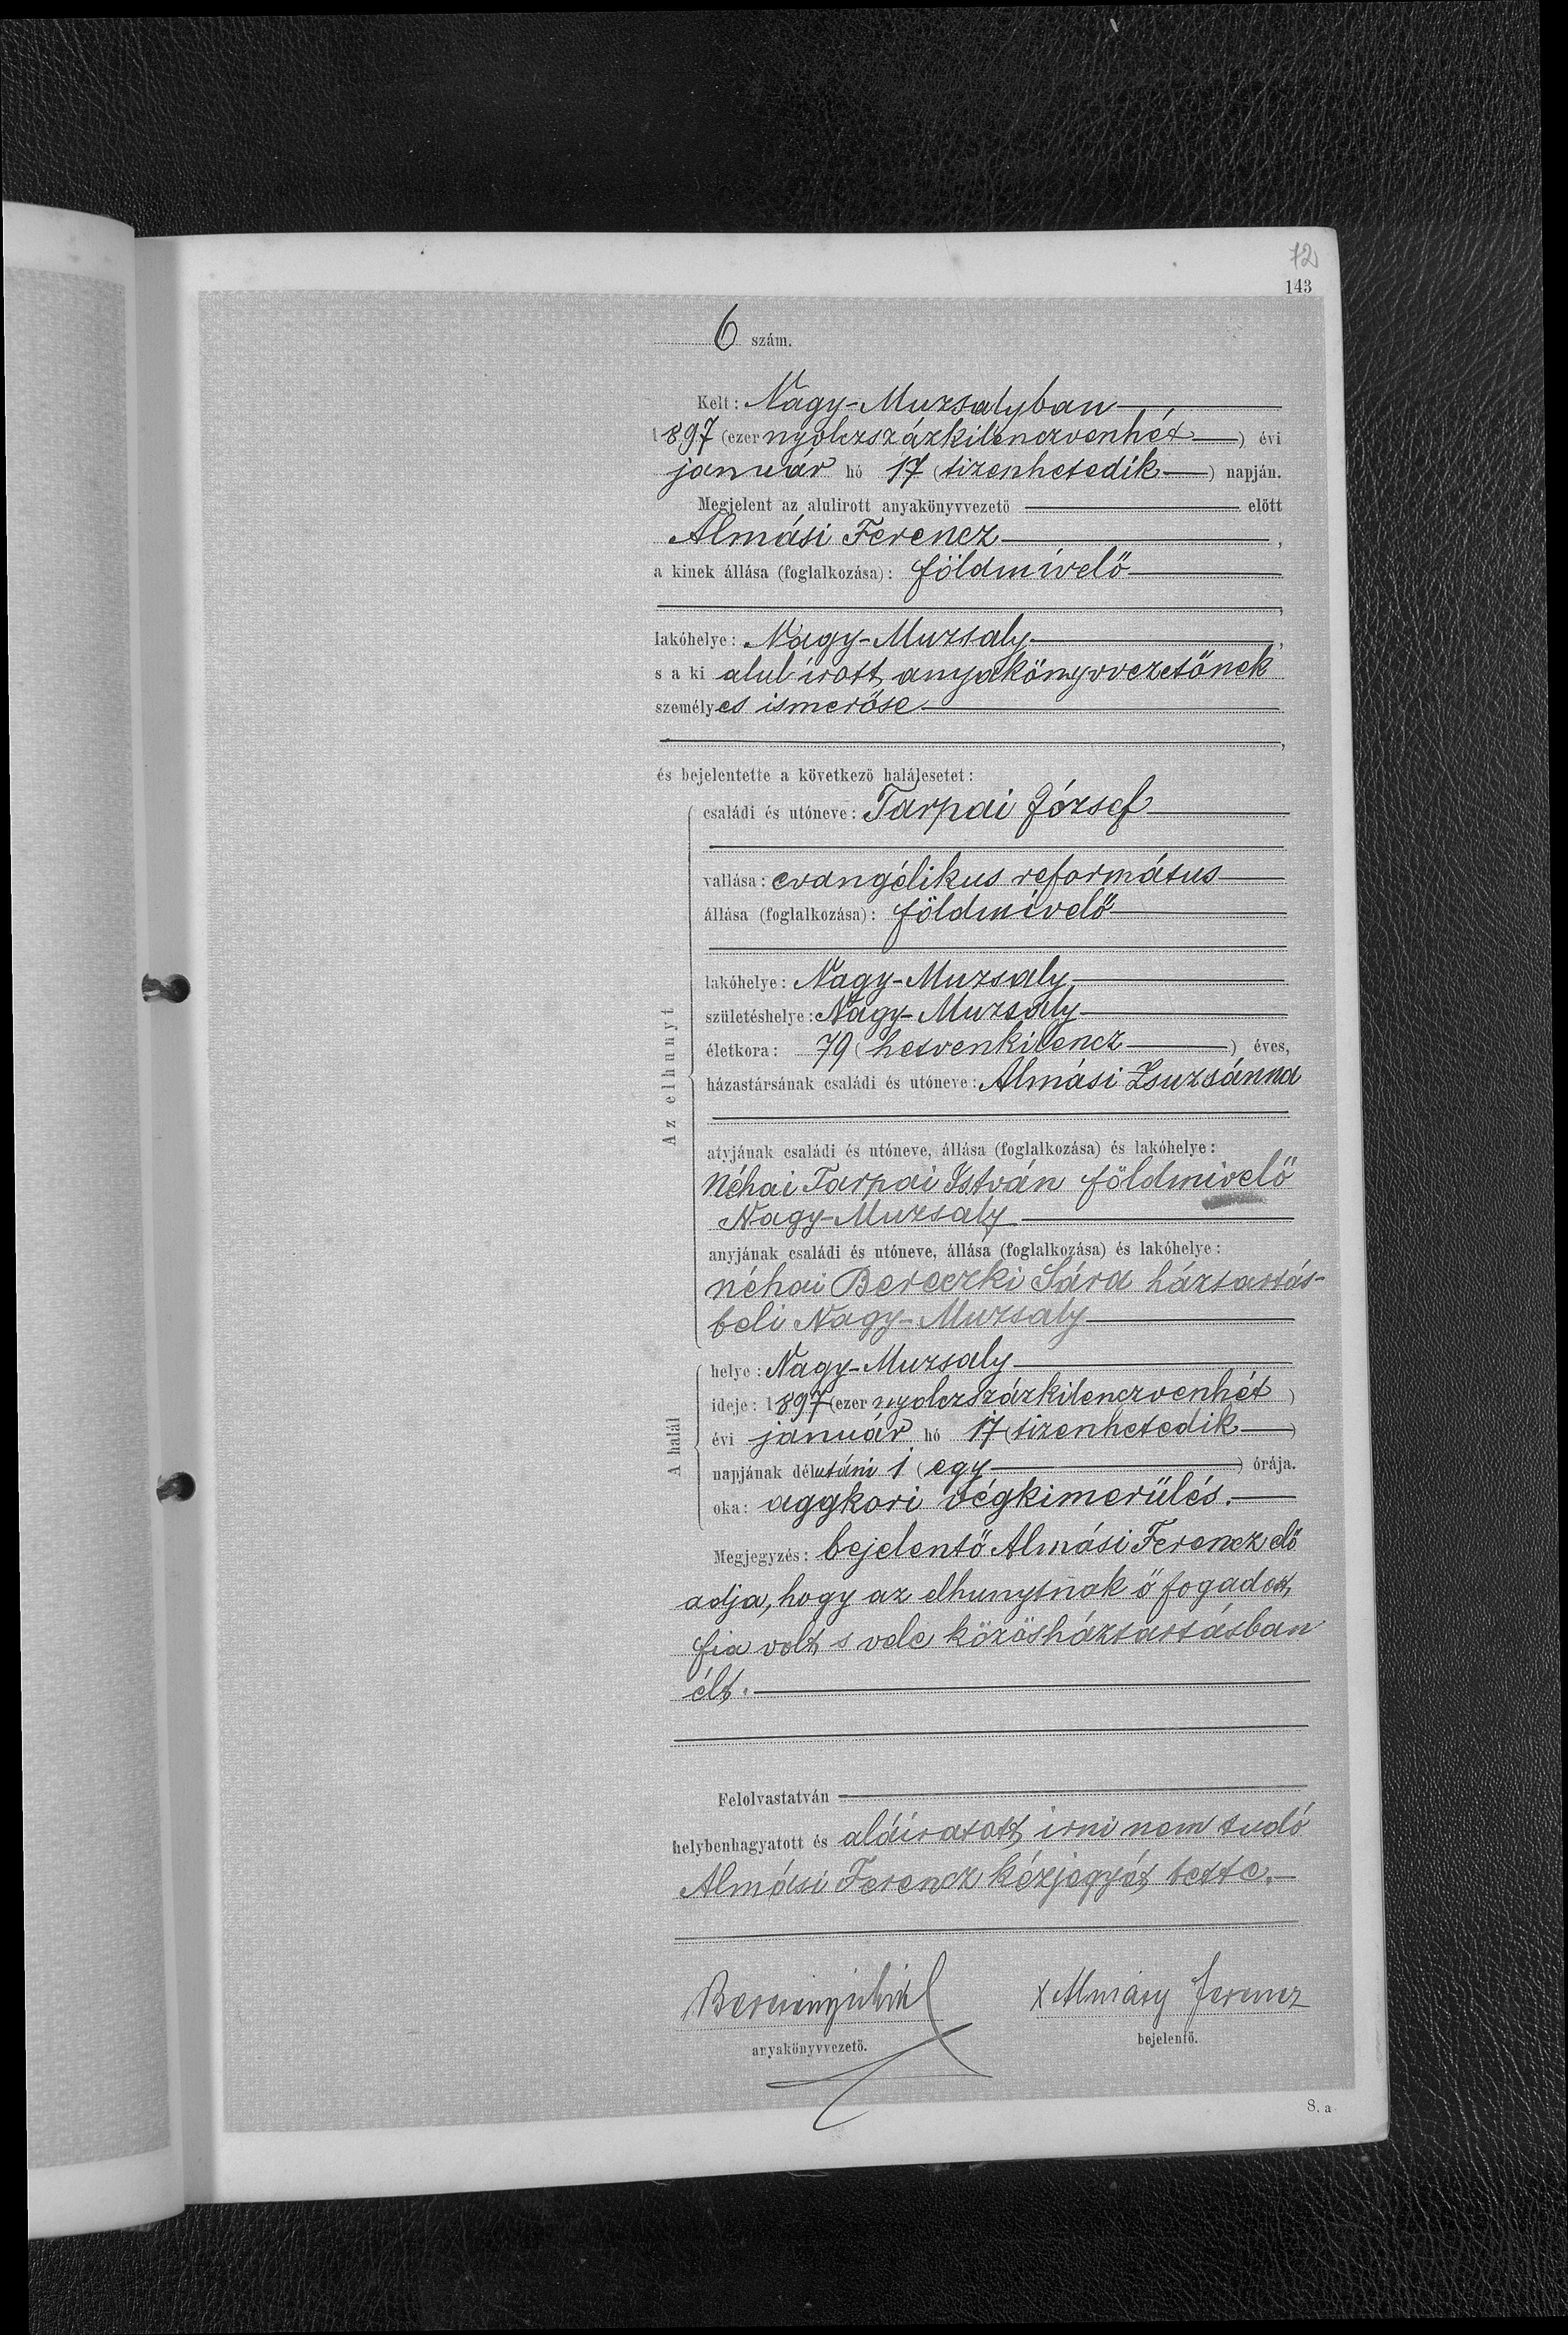 72
143
6 szám.
Kelt: Nagy-Muzsalyban
1897 (ezer nyolczszázkilenczvenhét) évi
január hó 17 (tizenhetedik) napján.
Megjelent az alulirott anyakönyvvezető előtt
Almási Ferencz,
a kinek állása (foglalkozása): földmívelő
,
lakóhelye: Nagy-Muzsaly,
s a ki alulírott anyakönyvvezetőnek
személyes ismerőse
,
és bejelentette a következő halálesetet:
Az elhunyt
családi és utóneve: Tarpai József
vallása: evangélikus református
állása (foglalkozása): földmívelő
lakóhelye: Nagy-Muzsaly
születéshelye: Nagy-Muzsaly
életkora: 79 (hetvenkilencz) éves,
házastársának családi és utóneve: Almási Zsuzsánna
atyjának családi és utóneve, állása (foglalkozása) és lakóhelye:
néhai Tarpai István földmivelő
Nagy-Muzsaly
anyjának családi és utóneve, állása (foglalkozása) és lakóhelye:
néhai Bereczki Sára háztartás-
beli Nagy-Muzsaly
A halál
helye: Nagy-Muzsaly
ideje: 1897 (ezer nyolczszázkilenczvenhét)
évi január hó 17 (tizenhetedik)
napjának délutáni 1 (egy) órája.
oka: aggkori végkimerülés.
Megjegyzés: bejelentő Almási Ferencz elő
adja, hogy az elhunytnak ő fogadott
fia volt s vele közösháztartásban
élt.
Felolvastatván
helybenhagyatott és aláiratott irni nem tudó
Almási Ferencz kézjegyét tette.
anyakönyvvezető.
x Almásy Ferencz
bejelentő.
8. a